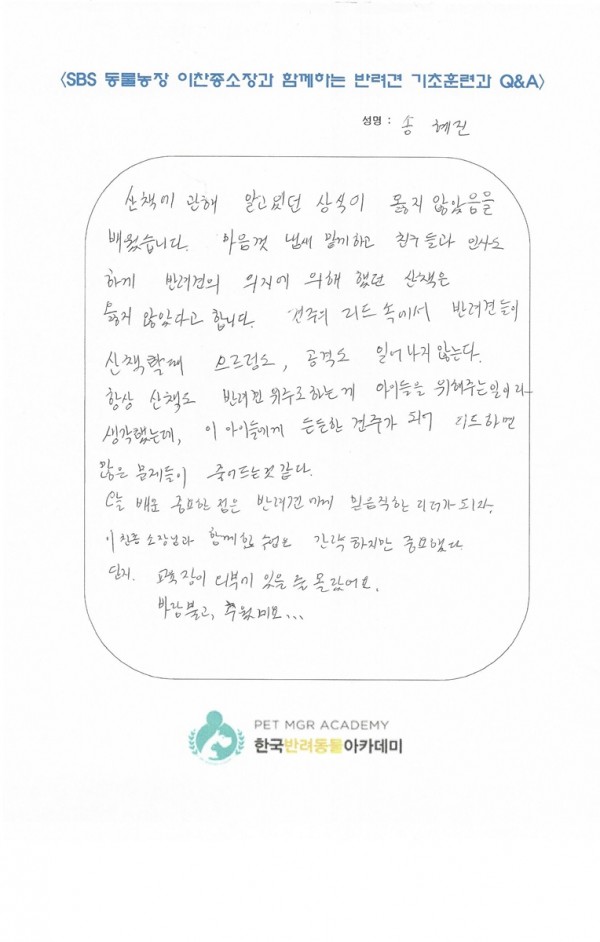 〈SBS 동물농장 이찬종소장과 함께하는 반려견 기초훈련과 Q&A〉
성명 : 송 혜진
산책에 관해 알고있던 상식이 옳지 않았음을
배웠습니다. 마음껏 냄새 맡게하고 친구들과 인사도
하게 반려견의 위지에 의해 했던 산책은
옳지 않았다고 합니다. 견주의 리드 속에서 반려견들이
산책할때 으르렁도, 공격도 일어나지않는다.
항상 산책도 반려견 위주로하는게 아이들을 위해주는일이라
생각했는데, 이 아이들에게 든든한 견주가 되어 리드하면
많은 문제들이 줄어드는것 같다.
오늘 배운 중요한 점은 반려견에게 믿음직한 리더가 되자.
이찬종 소장님과 함께한 수업은 간략하지만 중요했다.
단지. 교육장이 외부에 있을 줄 몰랐어요.
바람불고, 추웠어요...
PET MGR ACADEMY
한국반려동물아카데미